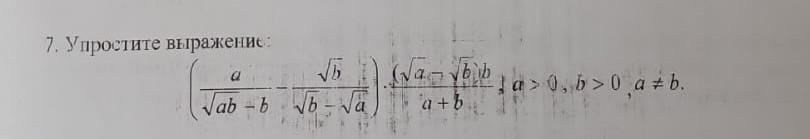 7. Упростите выражение:
(a/(√ab − b) − √b/(√b − √a)) · (√a − √b)b/(a + b), a > 0, b > 0, a ≠ b.